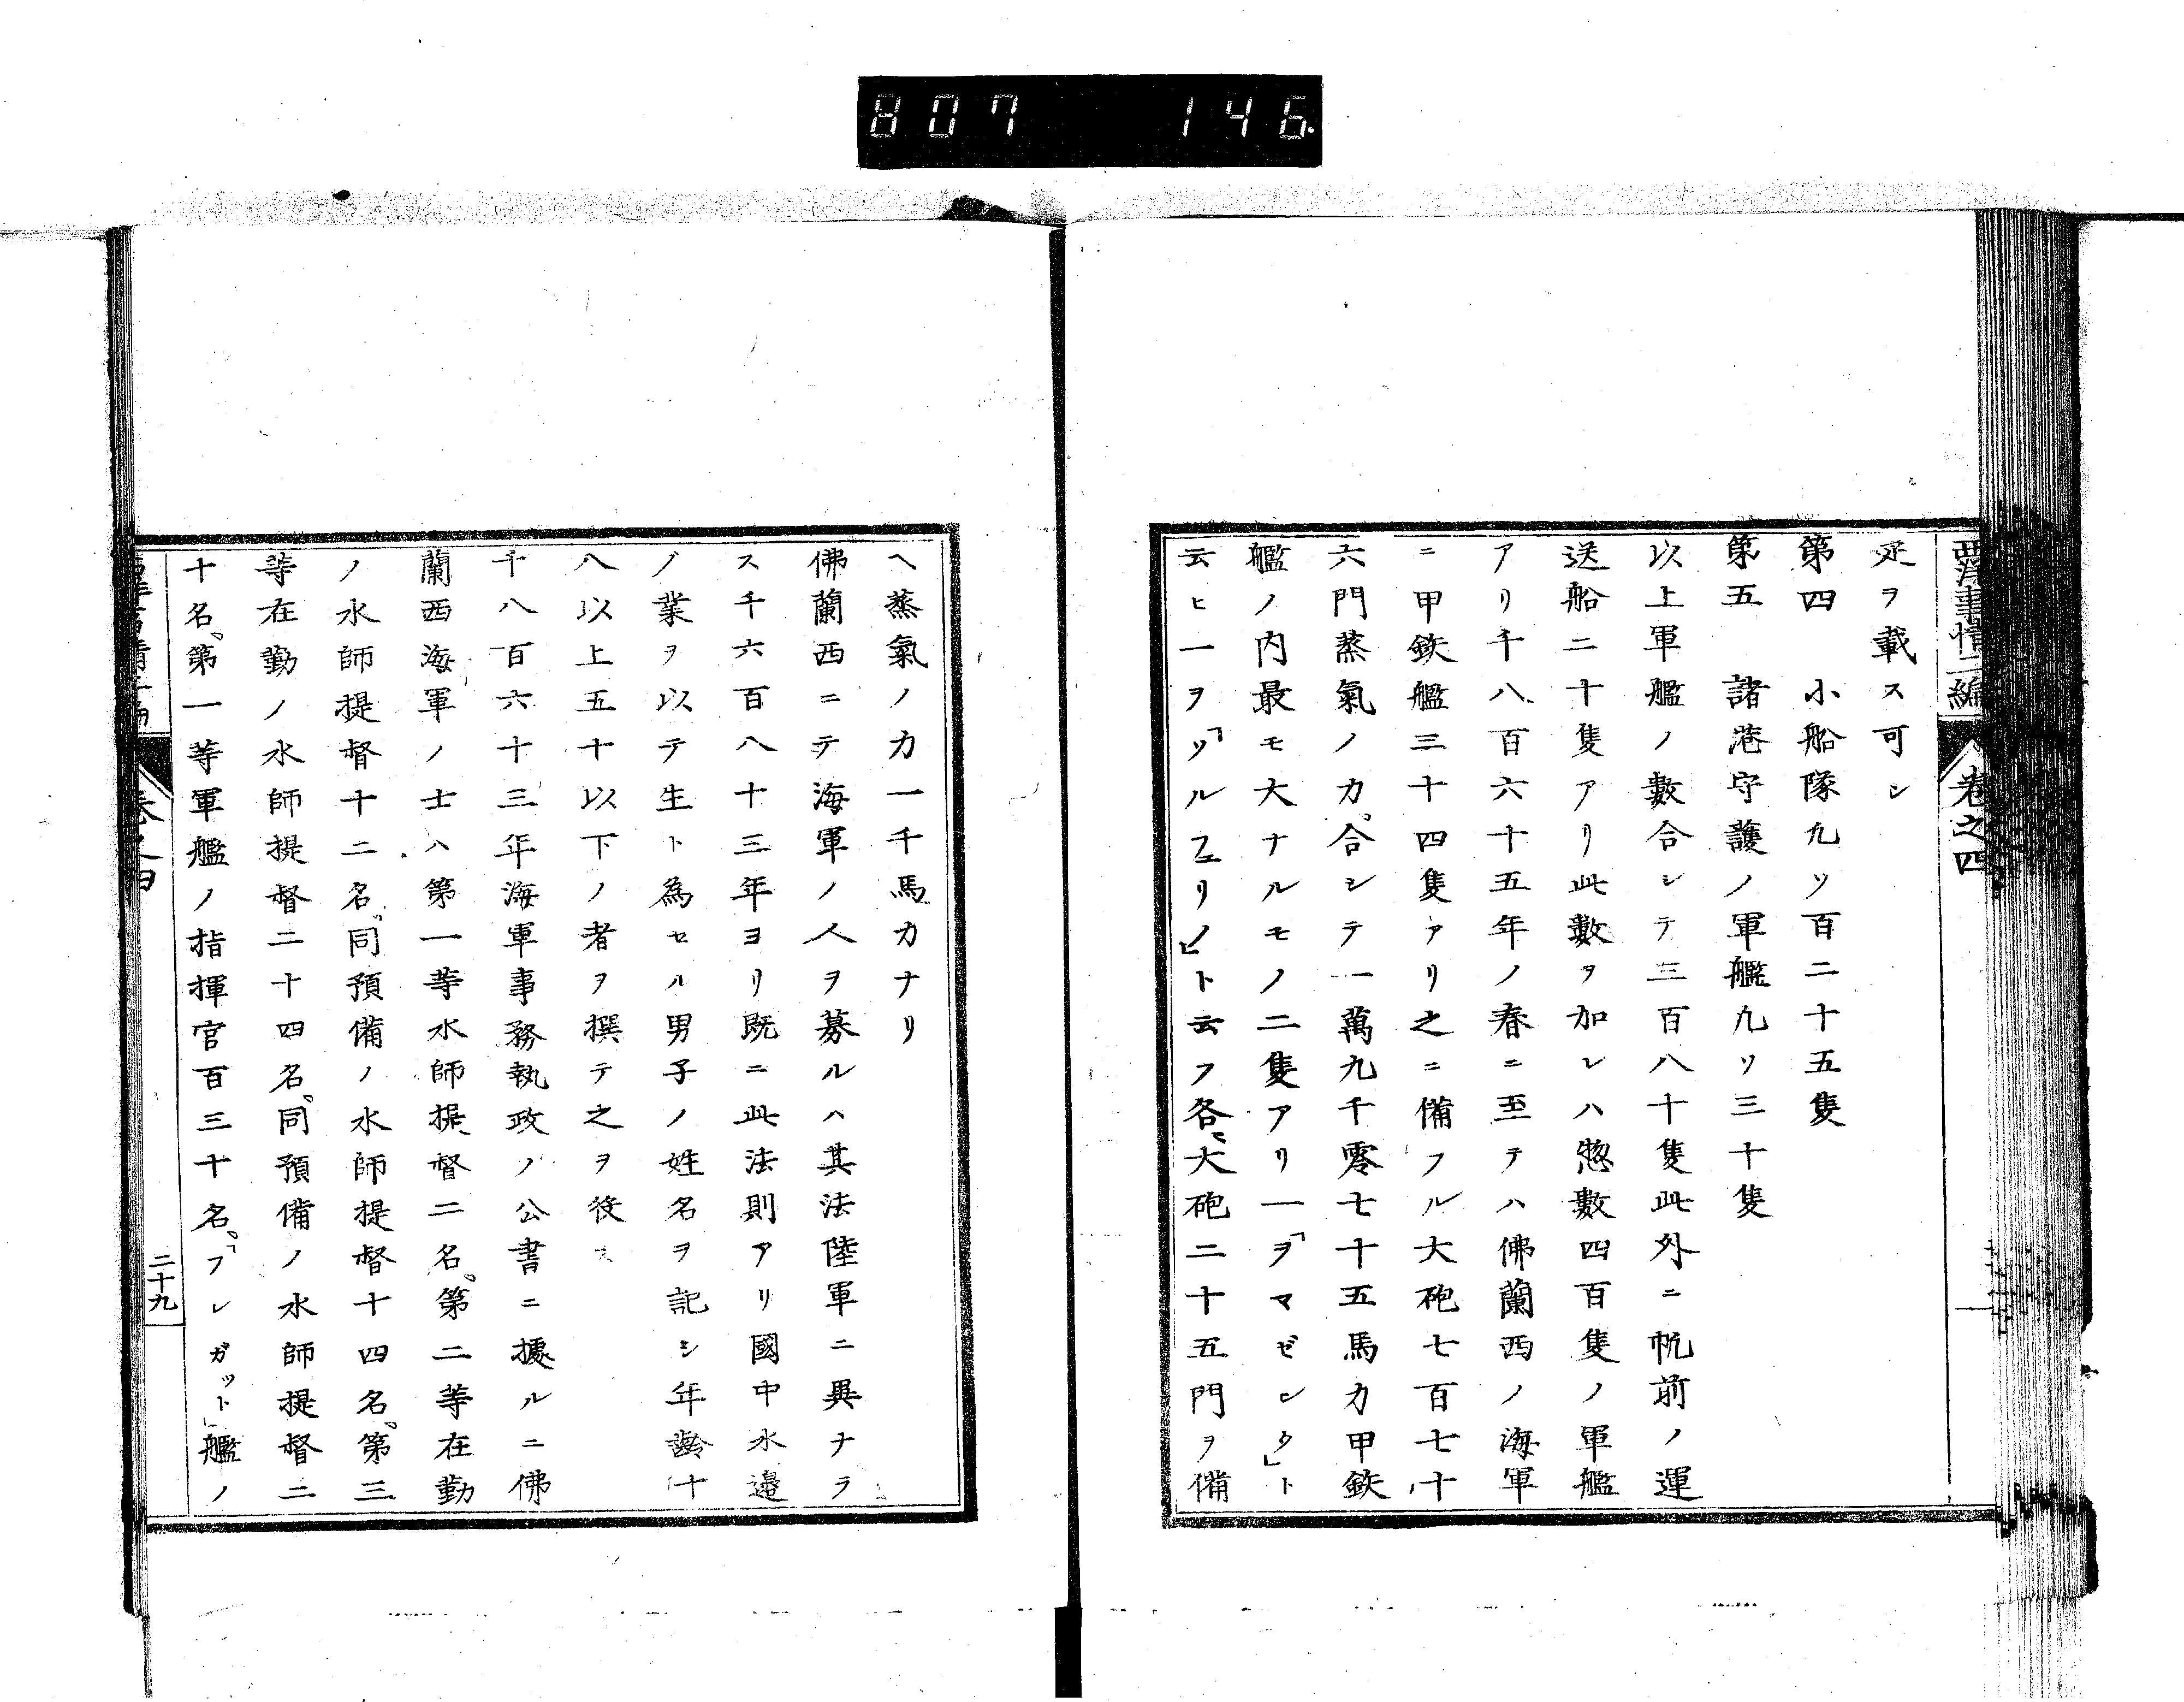 807 146
西洋事情二編 卷之四
疋ヲ載ス可シ
第四 小船隊九ツ百二十五隻
第五 諸港守護ノ軍艦九ツ三十隻
以上軍艦ノ數合シテ三百八十隻此外ニ帆前ノ運
送船二十隻アリ此數ヲ加レハ惣數四百隻ノ軍艦
アリ千八百六十五年ノ春ニ至テハ佛蘭西ノ海軍
ニ甲鉄艦三十四隻アリ之ニ備フル大砲七百七十
六門蒸氣ノ力合シテ一萬九千零七十五馬力甲鉄
艦ノ内最モ大ナルモノ二隻アリ一ヲ「マゼンタ」ト
云ヒ一ヲ「ソルフェリノ」ト云フ各〻大砲二十五門ヲ備
ヘ蒸氣ノ力一千馬力ナリ
佛蘭西ニテ海軍ノ人ヲ募ルハ其法陸軍ニ異ナラ
ス千六百八十三年ヨリ既ニ此法則アリ國中水邊
ノ業ヲ以テ生ト為セル男子ノ姓名ヲ記シ年齢十
八以上五十以下ノ者ヲ撰テ之ヲ役ス
千八百六十三年海軍事務執政ノ公書ニ據ルニ佛
蘭西海軍ノ士ハ第一等水師提督二名。第二等在勤
ノ水師提督十二名。同預備ノ水師提督十四名。第三
等在勤ノ水師提督二十四名。同預備ノ水師提督二
十名。第一等軍艦ノ指揮官百三十名。「フレガット」艦ノ
二十九